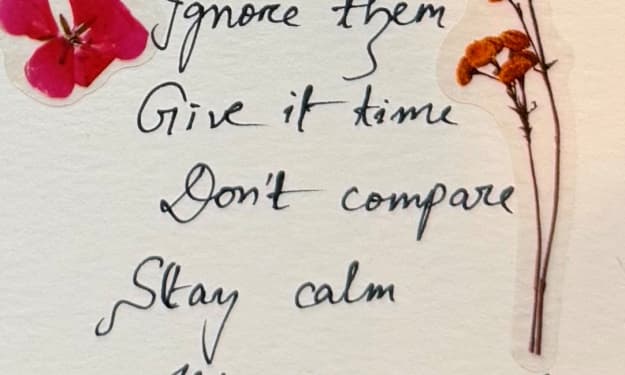 Ignore them
Give it time
Don't compare
Stay calm